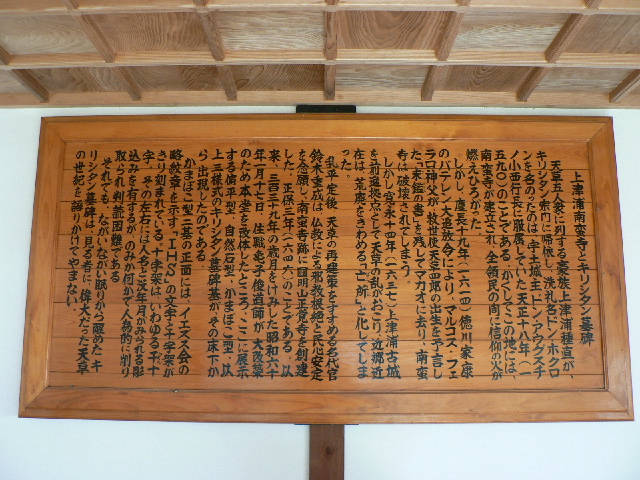 上津浦南蛮寺とキリシタン墓碑
天草五人衆に列する豪族上津浦種直が、
キリシタン宗門に帰依し、洗礼名ドン・ホクロ
ンを名のったのは、宇土城主ドン・アウグスチ
ノ小西行長に服属していた天正十八年（一
五九〇）のことである。かくしてこの地には、
南蛮寺が建立され、全領民の間に信仰の火が
燃えひろがった。
しかし、慶長十九年（一六一四）徳川家康
のバテレン大追放令により、マルコス・フェ
ラロ神父が、救世の天童四郎の出生を予言し
た「末鑑の書」を残してマカオに去り、南蛮
寺は破壊されてしまう。
しかし寛永十四年（一六三七）上津浦古城
を前進拠点として天草の乱がおこり、近郷近
在は、荒廃をきわめる「亡所」と化してしま
った。
乱平定後、天草の再建策をすすめる名代官
鈴木重成は、仏教による邪教根絶と民心安定
を念願し、南蛮寺跡に圓明山正覚寺を創建
した。正保三年（一六四六）のことである。以
来、三百三十九年の歳月をけみした昭和六十
年一月十七日、住職亀子俊道師が、大改築
のため本堂を改体したところ、ここに展示
する庵平型・自然石型・かまぼこ型、以
上三様式のキリシタン墓碑基が、その床下か
ら出現したのである。
かまぼこ型二基の正面には、イエズス会の
略紋章を示す「IHS」の文字と十字架が
きり刻まれている。十字架はいわゆる干十
字、その左右には人名と没年月がみられる彫
込みを有するが、のみか何かで人為的に削り
取られ判読困難である
それでも、ながいながい眠りから醒めたキ
リシタン墓碑は、見る者に、偉大だった天草
の世紀を語りかけてやまない。